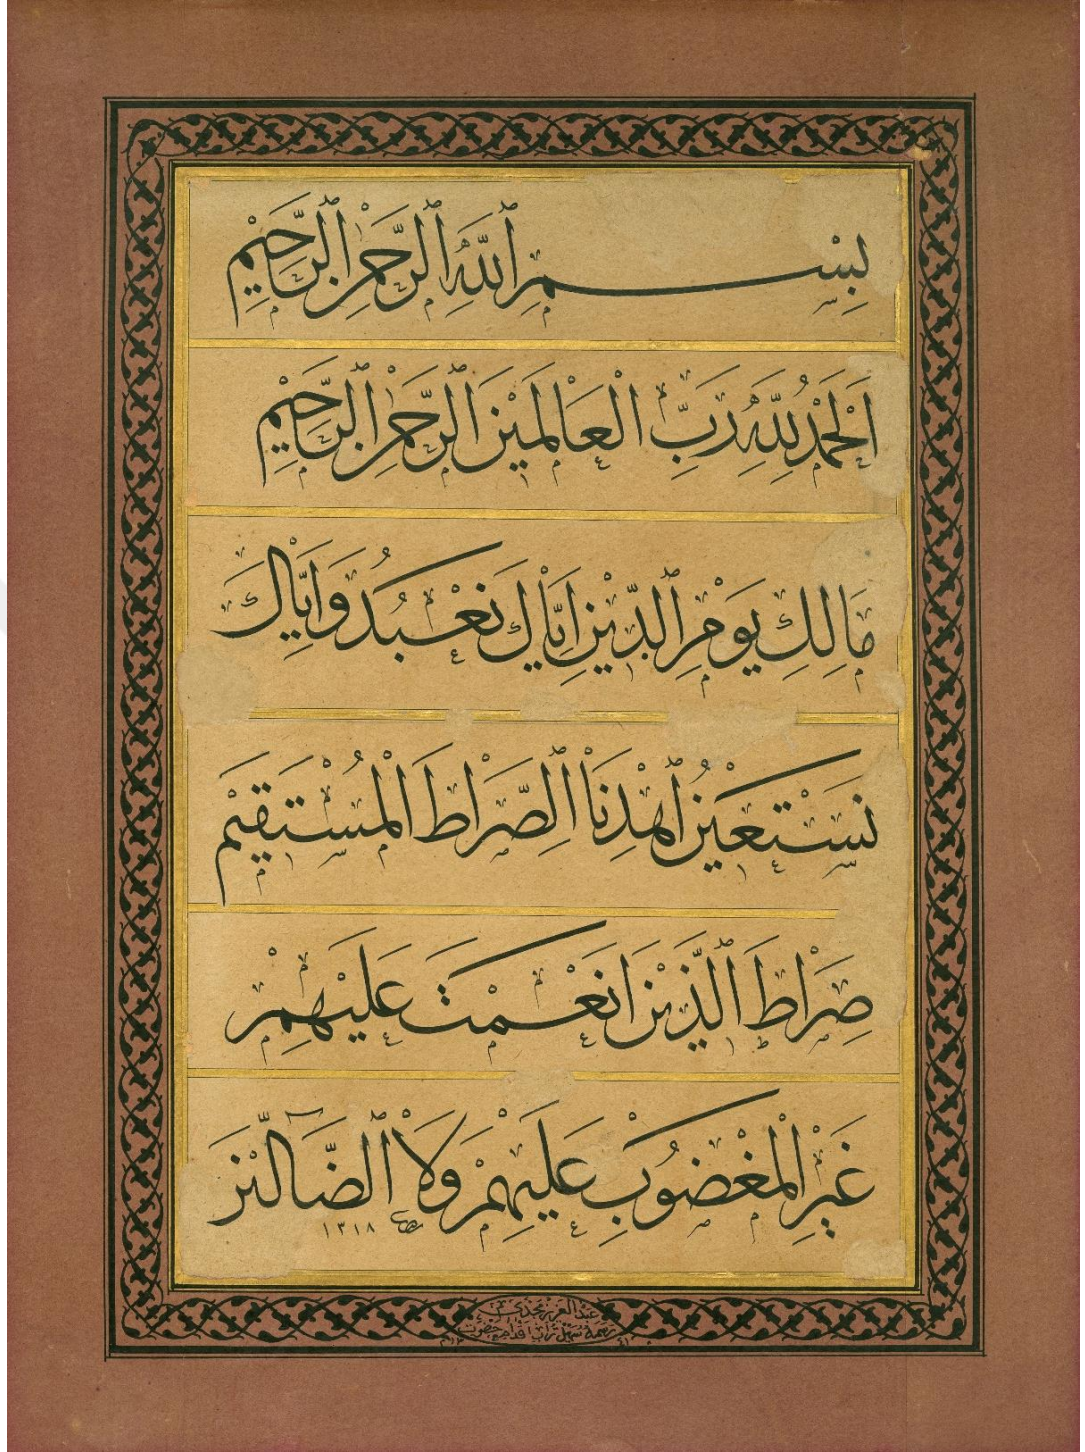 بِسْمِ ٱللَّهِ ٱلرَّحْمٰنِ ٱلرَّحِيْمِ
اَلْحَمْدُ لِلَّهِ رَبِّ الْعَالَمِيْنَ ٱلرَّحْمٰنِ ٱلرَّحِيْمِ
مَالِكِ يَوْمِ ٱلدِّيْنِ اِيَّاكَ نَعْبُدُ وَاِيَّاكَ
نَسْتَعِيْنُ اِهْدِنَا ٱلصِّرَاطَ الْمُسْتَقِيْمَ
صِرَاطَ ٱلَّذِيْنَ اَنْعَمْتَ عَلَيْهِمْ
غَيْرِ الْمَغْضُوْبِ عَلَيْهِمْ وَلَا ٱلضَّآلِّيْنَ
١٣١٨
عبد العزيز مجدي